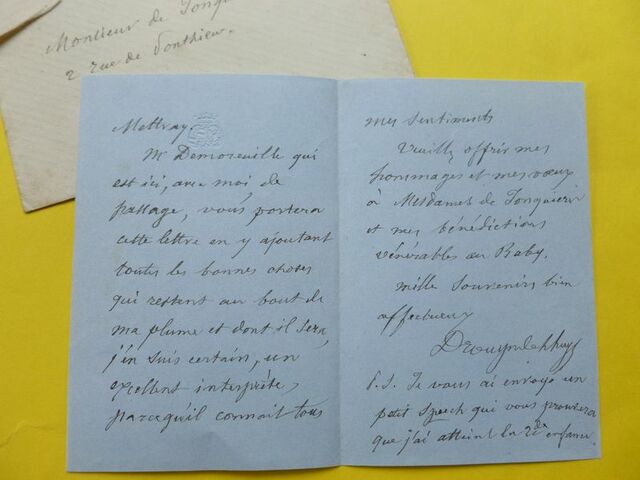 Monsieur de
2 rue de Ponthieu.
Mettray.
Mr Demoreuille qui
est ici, avec moi de
passage, vous portera
cette lettre en y ajoutant
toutes les bonnes choses
qui restent au bout de
ma plume et dont il sera,
j'en suis certain, un
excellent interprète,
parcequ'il connait tous
mes sentiments
Veuillez offrir mes
hommages et mes vœux
à Mesdames de
et mes bénédictions
vénérables au Baby.
mille souvenirs bien
affectueux
Drouyn de Lhuys
P.S. Je vous ai envoyé un
petit speech qui vous prouvera
que j'ai atteint la 2de enfance.